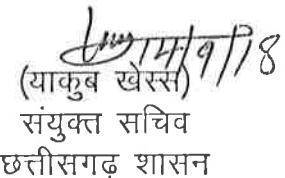 (याकुब खेस्स)
संयुक्त सचिव
छत्तीसगढ़ शासन